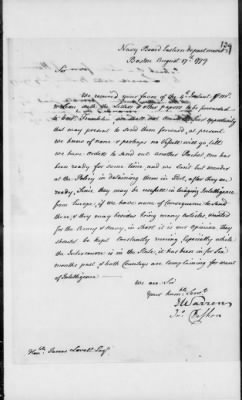 129
Navy Board Eastern Department
Boston August 17th 1779
Sir
We received your favour of the 4th Instant
with the Letters & other papers to be forwarded
to Doct. Franklin we shall not omit the first opportunity
that may present to send them forward, at present
we know of none & perhaps no Vessell will go, till
we have orders to send out another Packet one has
been ready for some time, and we could but wonder
at the Policy in detaining them in Port, after they are
ready, Since they may be usefull in bringing Intelligence
from Europe, if we have none of Consequence to Send
there, & they may besides bring many articles, wanted
for the Army & Navy, in short it is our Opinion they
should be kept Constantly runing Especially while
the Intercourse is in the State, it has been in for Six
months past & both Countrys are Complaining for want
of Intelligence
We are Sir
Your humble Servts
J Warren
Honble James Lovell Esqr